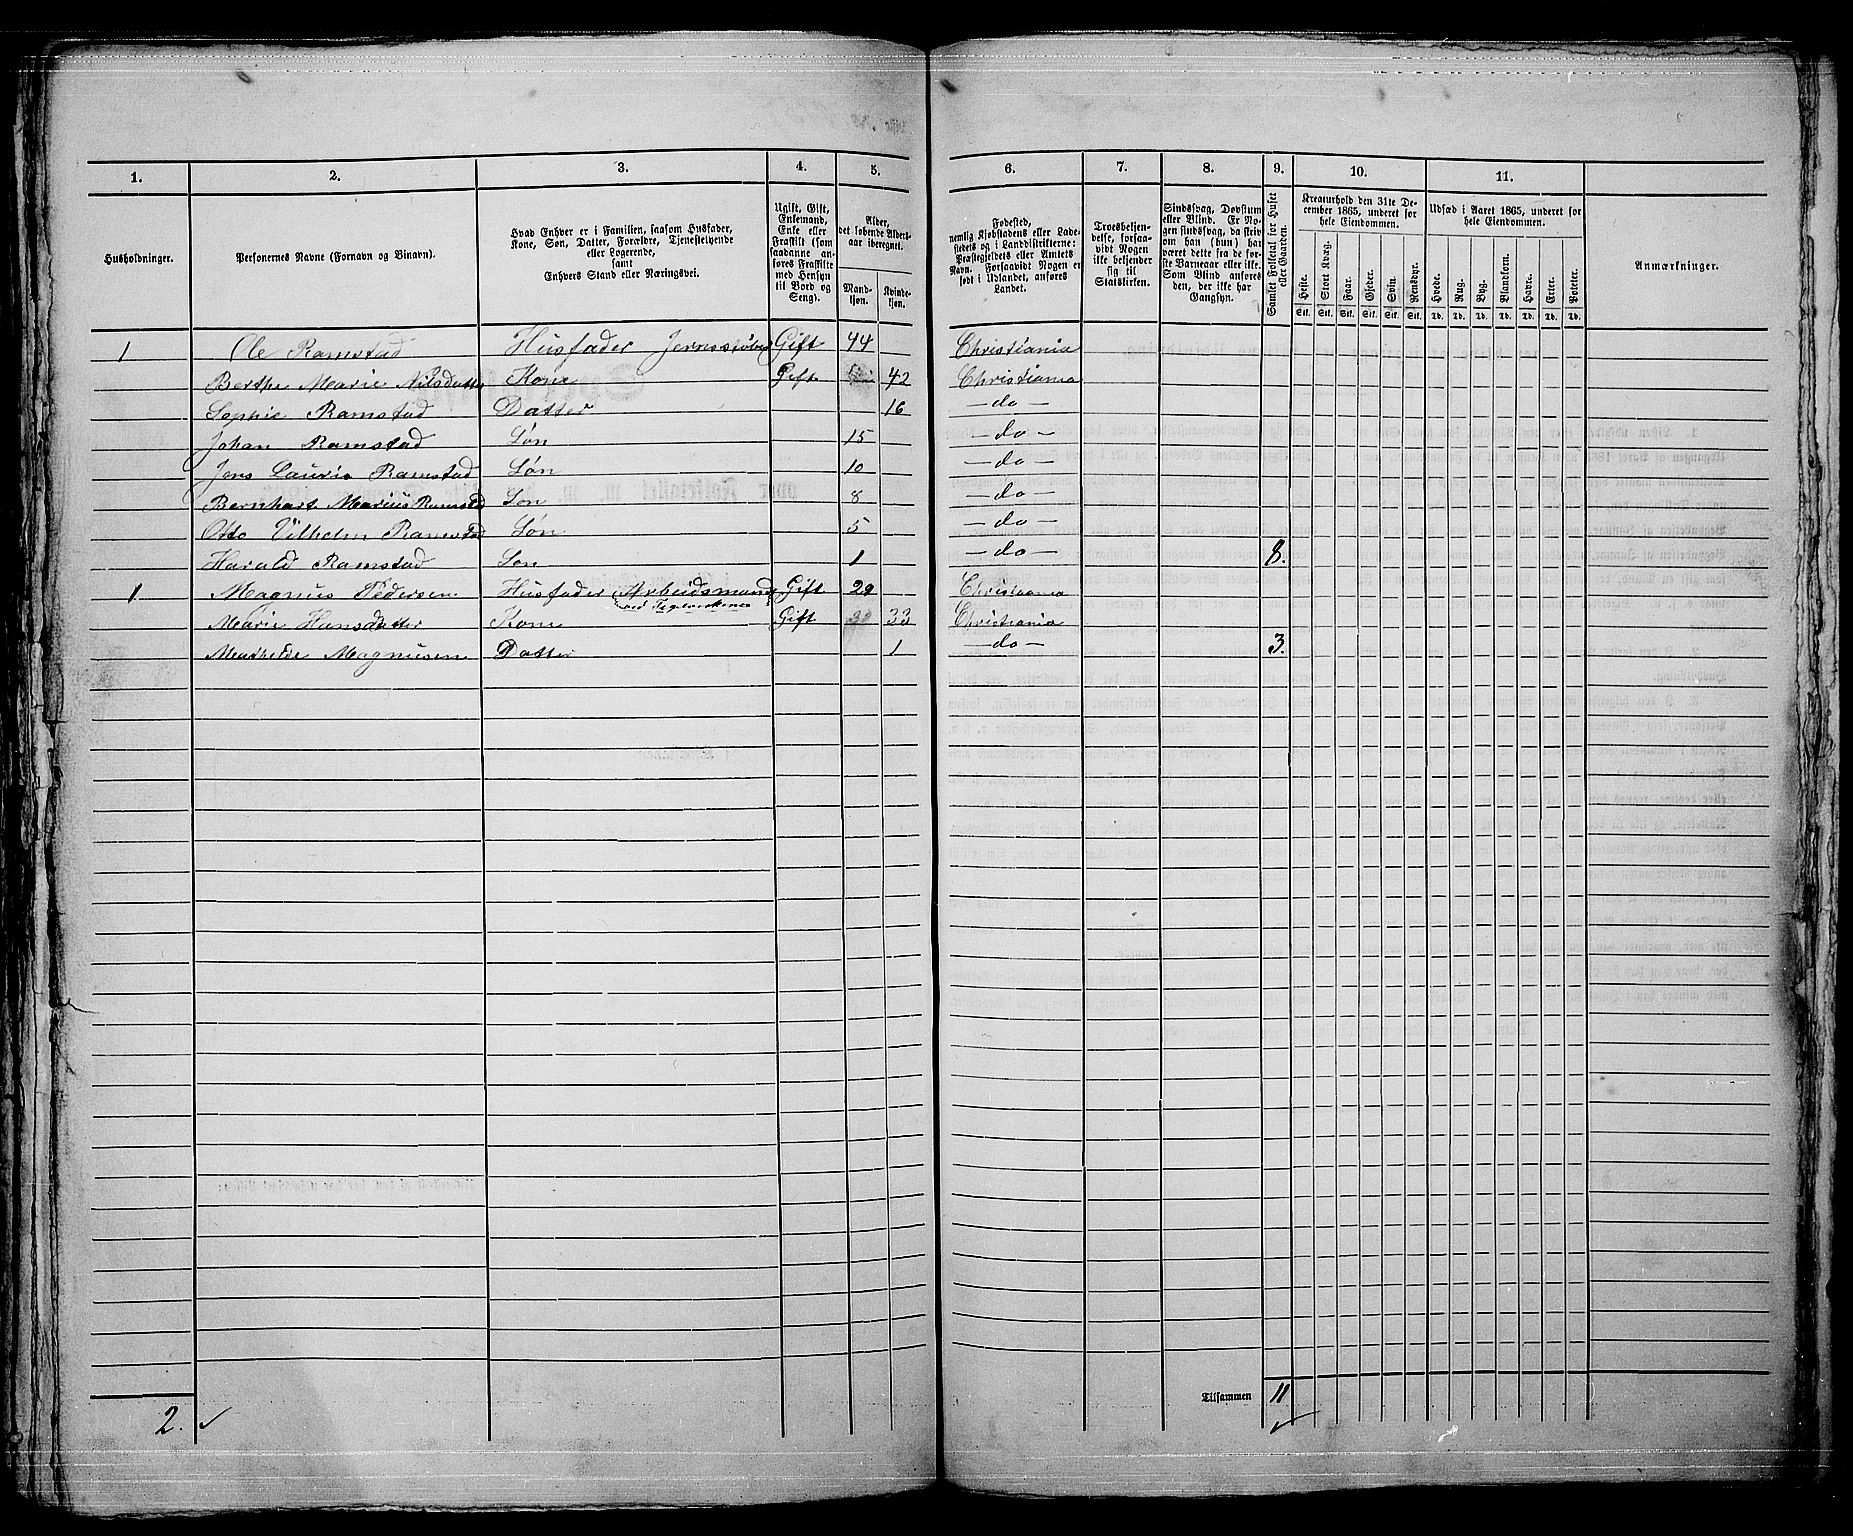 1. 2. 3. 4. 5. 6. 7. 8. 9. 10. 11.
Husholdninger.
Personernes Navne (Fornavn og Binavn).
Hvad Enhver er i Familien, saasom Husfader,
Kone, Søn, Datter, Forældre, Tjenestetyende
eller Logerende,
samt
Enhvers Stand eller Næringsvei.
Ugift, Gift,
Enkemand,
Enke eller
Fraskilt (som
saadanne an-
føres Fraskilte
med Hensyn
til Bord og
Seng).
Alder,
det løbende Alders-
aar iberegnet.
Mand-
kjøn.
Kvinde-
kjøn.
Fødested,
nemlig Kjøbstadens eller Lade-
stedets og i Landdistrikterne:
Præstegjeldets eller Amtets
Navn. Forsaavidt Nogen er
født i Udlandet, anføres
Landet.
Troesbekjen-
delse, forsaa-
vidt Nogen
ikke bekjender
sig til
Statskirken.
Sindssvag, Døvstum
eller Blind. Er No-
gen sindssvag, da skriv
om han (hun) har
været dette fra de før-
ste Barneaar eller ikke.
Som Blind ansøres
den, der ikke har
Gangsyn.
Samlet Folketal for Huset
eller Gaarden.
Kreaturhold den 31te De-
cember 1865, underet for
hele Eiendommen.
Heste. Stort Kvæg. Faar. Gjeder. Svin. Rensdyr.
Stk. Stk. Stk. Stk. Stk. Stk.
Udsæd i Aaret 1865, underet for
hele Eiendommen.
Hvede. Rug. Byg. Blandkorn. Havre. Erter. Poteter.
Td. Td. Td. Td. Td. Td. Td.
Anmærkninger.
1 Ole Ramstad Husfader Gift 44 Christiania
Berthe Marie Nilsdatter Kone Gift 42 Christiania
Sophie Ramstad Datter 16 — do —
Johan Ramstad Søn 15 — do —
Jens Lauris Ramstad Søn 10 — do —
Bernhart Marius Ramstad Søn 8 — do —
Otto Vilhelm Ramstad Søn 5 — do —
Harald Ramstad Søn 1 — do — 8.
1. Magnus Pedersen Husfader Arbeidsmand Gift 29 Christiania
ved Teglverkenes
Marie Hansdatter Kone Gift 33 Christiania
Magnusen Datter 1 — do — 3.
Tilsammen 11
2.